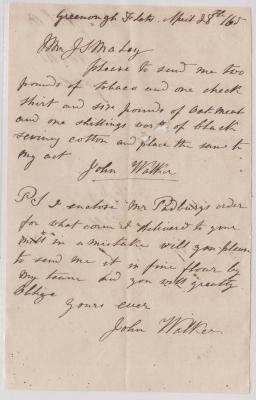 Greenough Flats April 28th /65
Mr J S Maley
please to send me two
pounds of tobaco and one check
shirt and six pounds of oat meal
and one shillings worth of black
sewing cotton and place the same to
my act
John Walker
PS I enclose Mr Padburys order
for what corn I delivered to your
mill in a mistake will you please
to send me it in fine flour by
my team and you will greatly
oblige
yours ever
John Walker